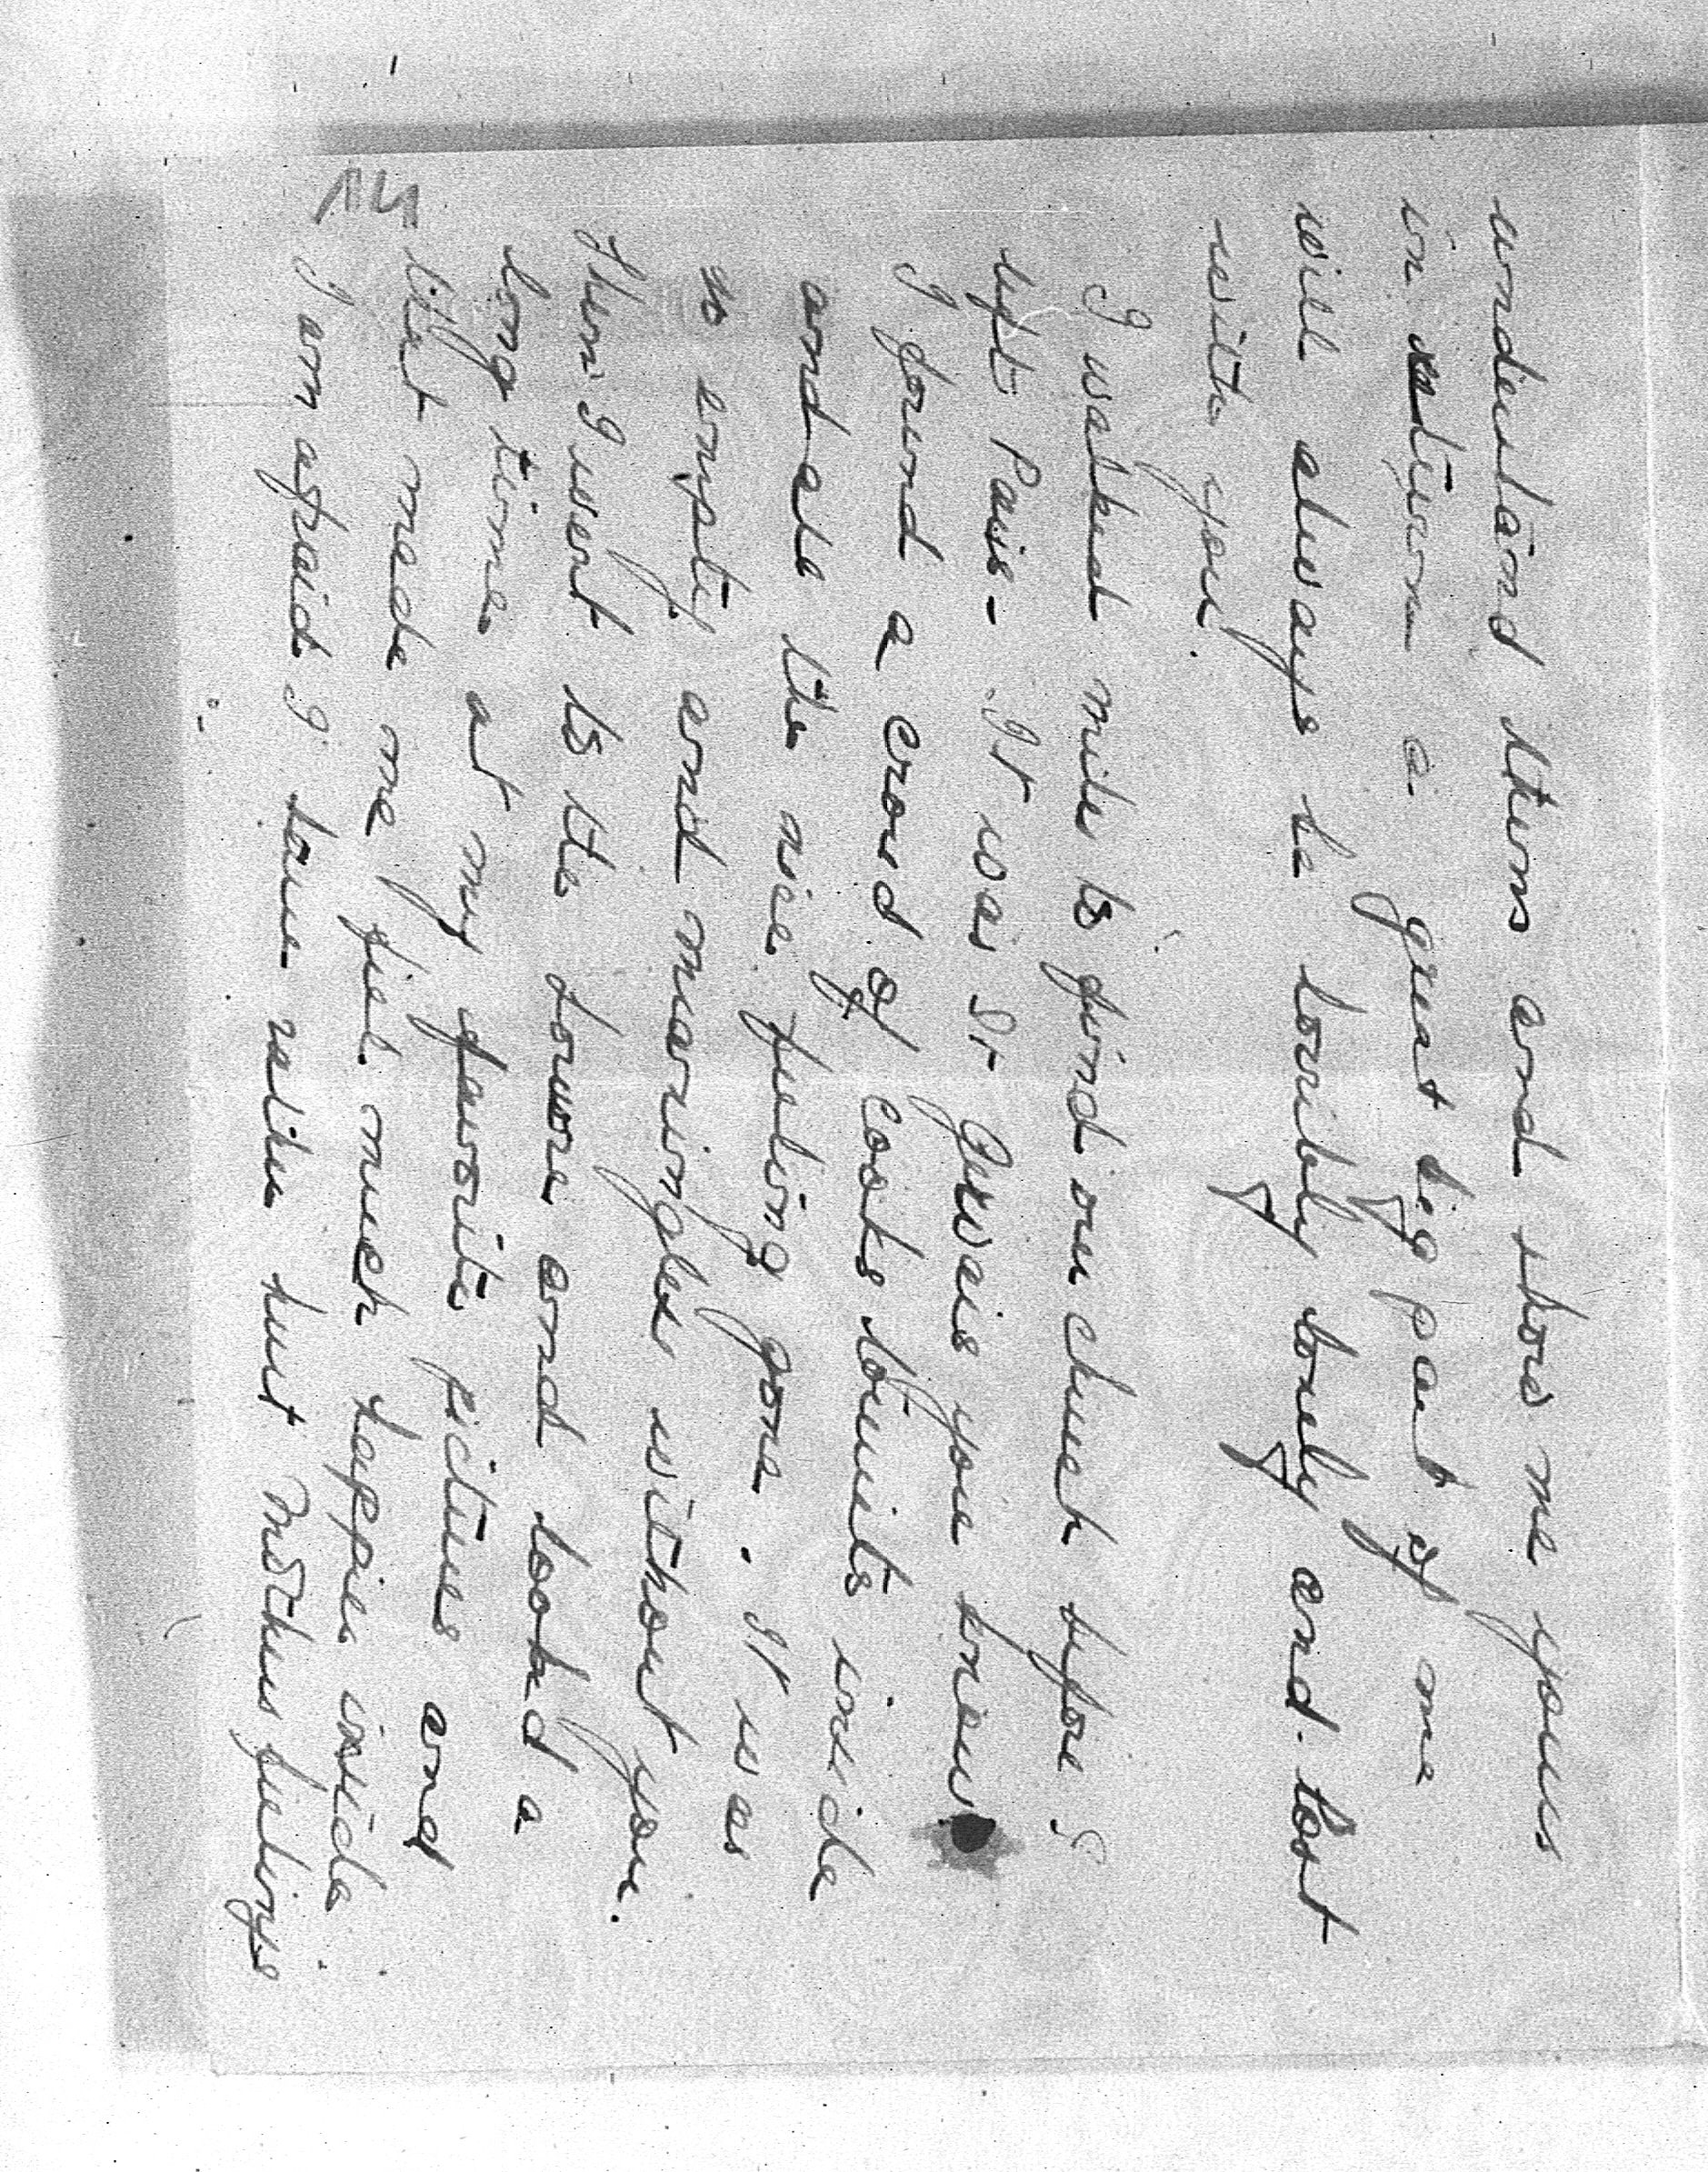 understand them and show me yours
in return a great big part of me
will always be terribly lonely and lost
with you.
I walked miles to find our church before I
left Paris - It was St Gervais you know
I found a crowd of Cooks tourists inside
and all the nice feeling gone. It was
so empty and meaningless without you.
Then I went to the Louvre and looked a
long time at my favorite pictures and
that made me feel much happier inside
I am afraid I have rather hurt Mothers feelings
14